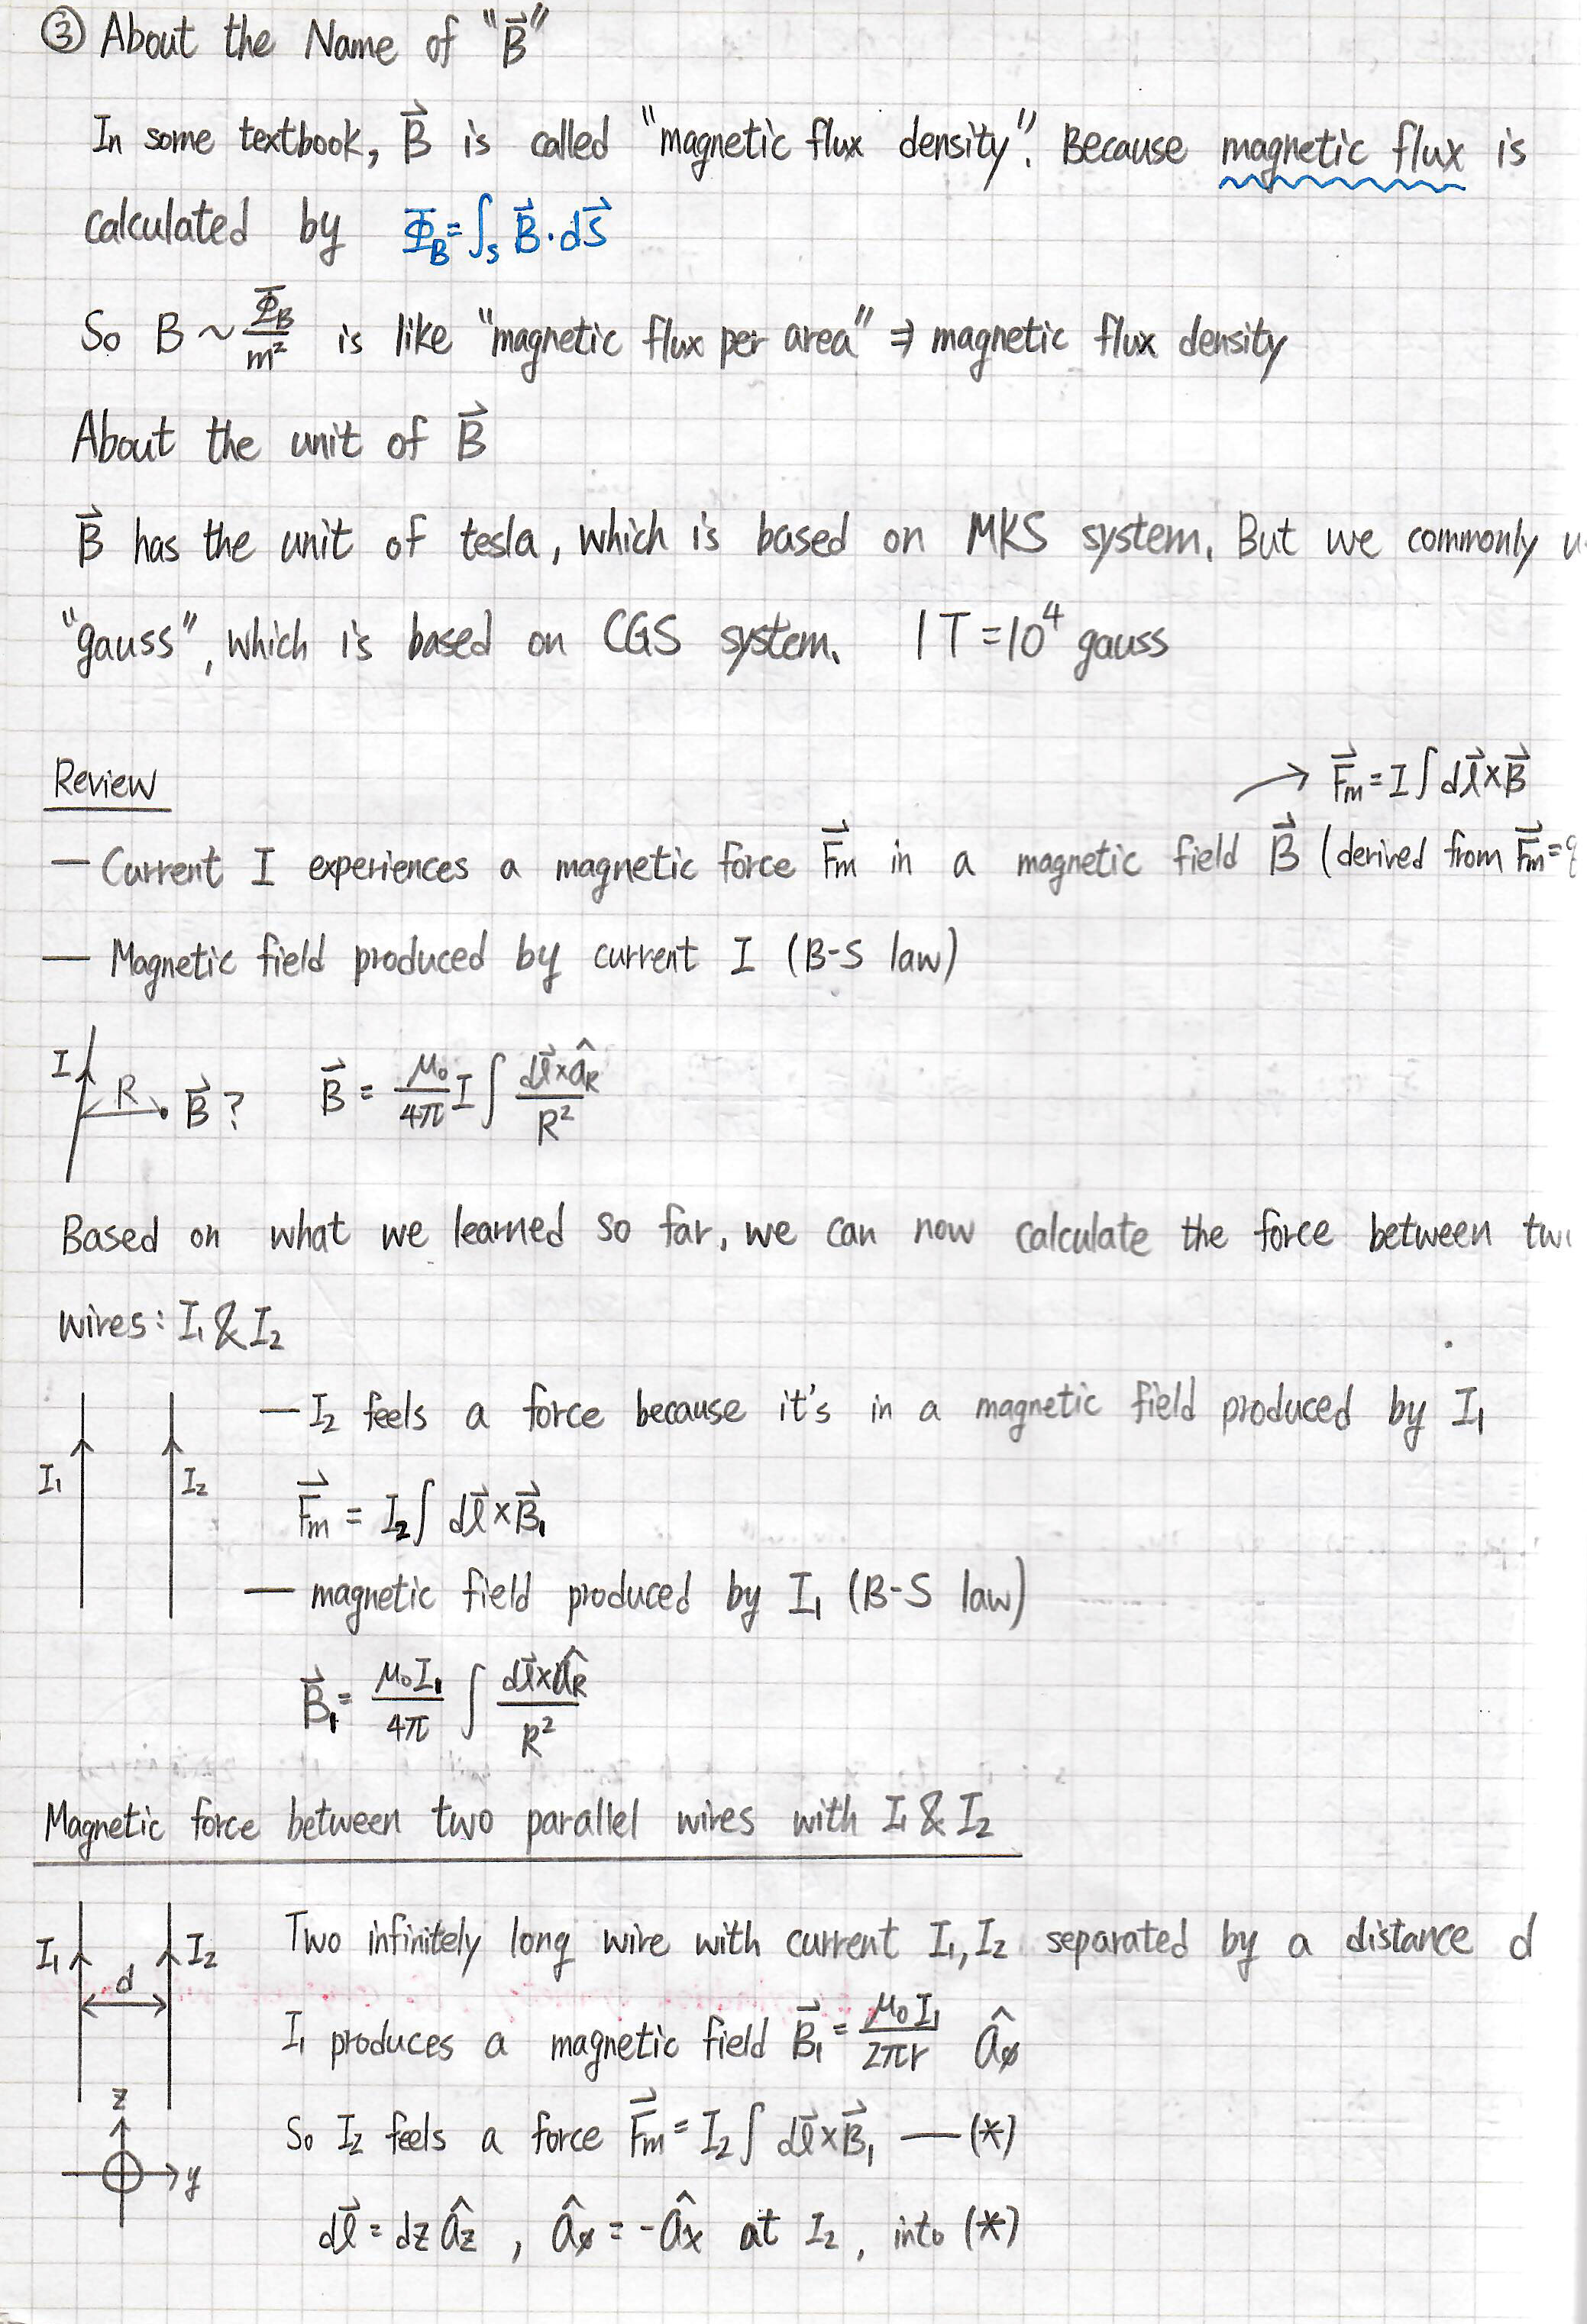 ③ About the Name of "B⃗"
In some textbook, B⃗ is called "magnetic flux density". Because magnetic flux is
calculated by Φ_B = ∫_S B⃗·dS⃗
So B ~ Φ_B/m² is like "magnetic flux per area" ⇒ magnetic flux density
About the unit of B⃗
B⃗ has the unit of tesla, which is based on MKS system. But we commonly
"gauss", which is based on CGS system. 1 T = 10⁴ gauss
Review
→ F⃗m = I∫ dl⃗ × B⃗
— Current I experiences a magnetic force F⃗m in a magnetic field B⃗ (derived from F⃗m =
— Magnetic field produced by current I (B-S law)
I R B⃗? B⃗ = μ₀/4π I ∫ dl⃗ × â_R / R²
Based on what we learned so far, we can now calculate the force between
wires: I₁ & I₂
— I₂ feels a force because it's in a magnetic field produced by I₁
I₁ I₂
F⃗m = I₂∫ dl⃗ × B⃗₁
— magnetic field produced by I₁ (B-S law)
B⃗₁ = μ₀I₁/4π ∫ dl⃗ × â_R / R²
Magnetic force between two parallel wires with I₁ & I₂
I₁ I₂ d
Two infinitely long wire with current I₁, I₂ separated by a distance d
I₁ produces a magnetic field B⃗₁ = μ₀I₁/2πr â_ø
z
So I₂ feels a force F⃗m = I₂∫ dl⃗ × B⃗₁ — (*)
y
dl⃗ = dz â_z , â_ø = -â_x at I₂, into (*)